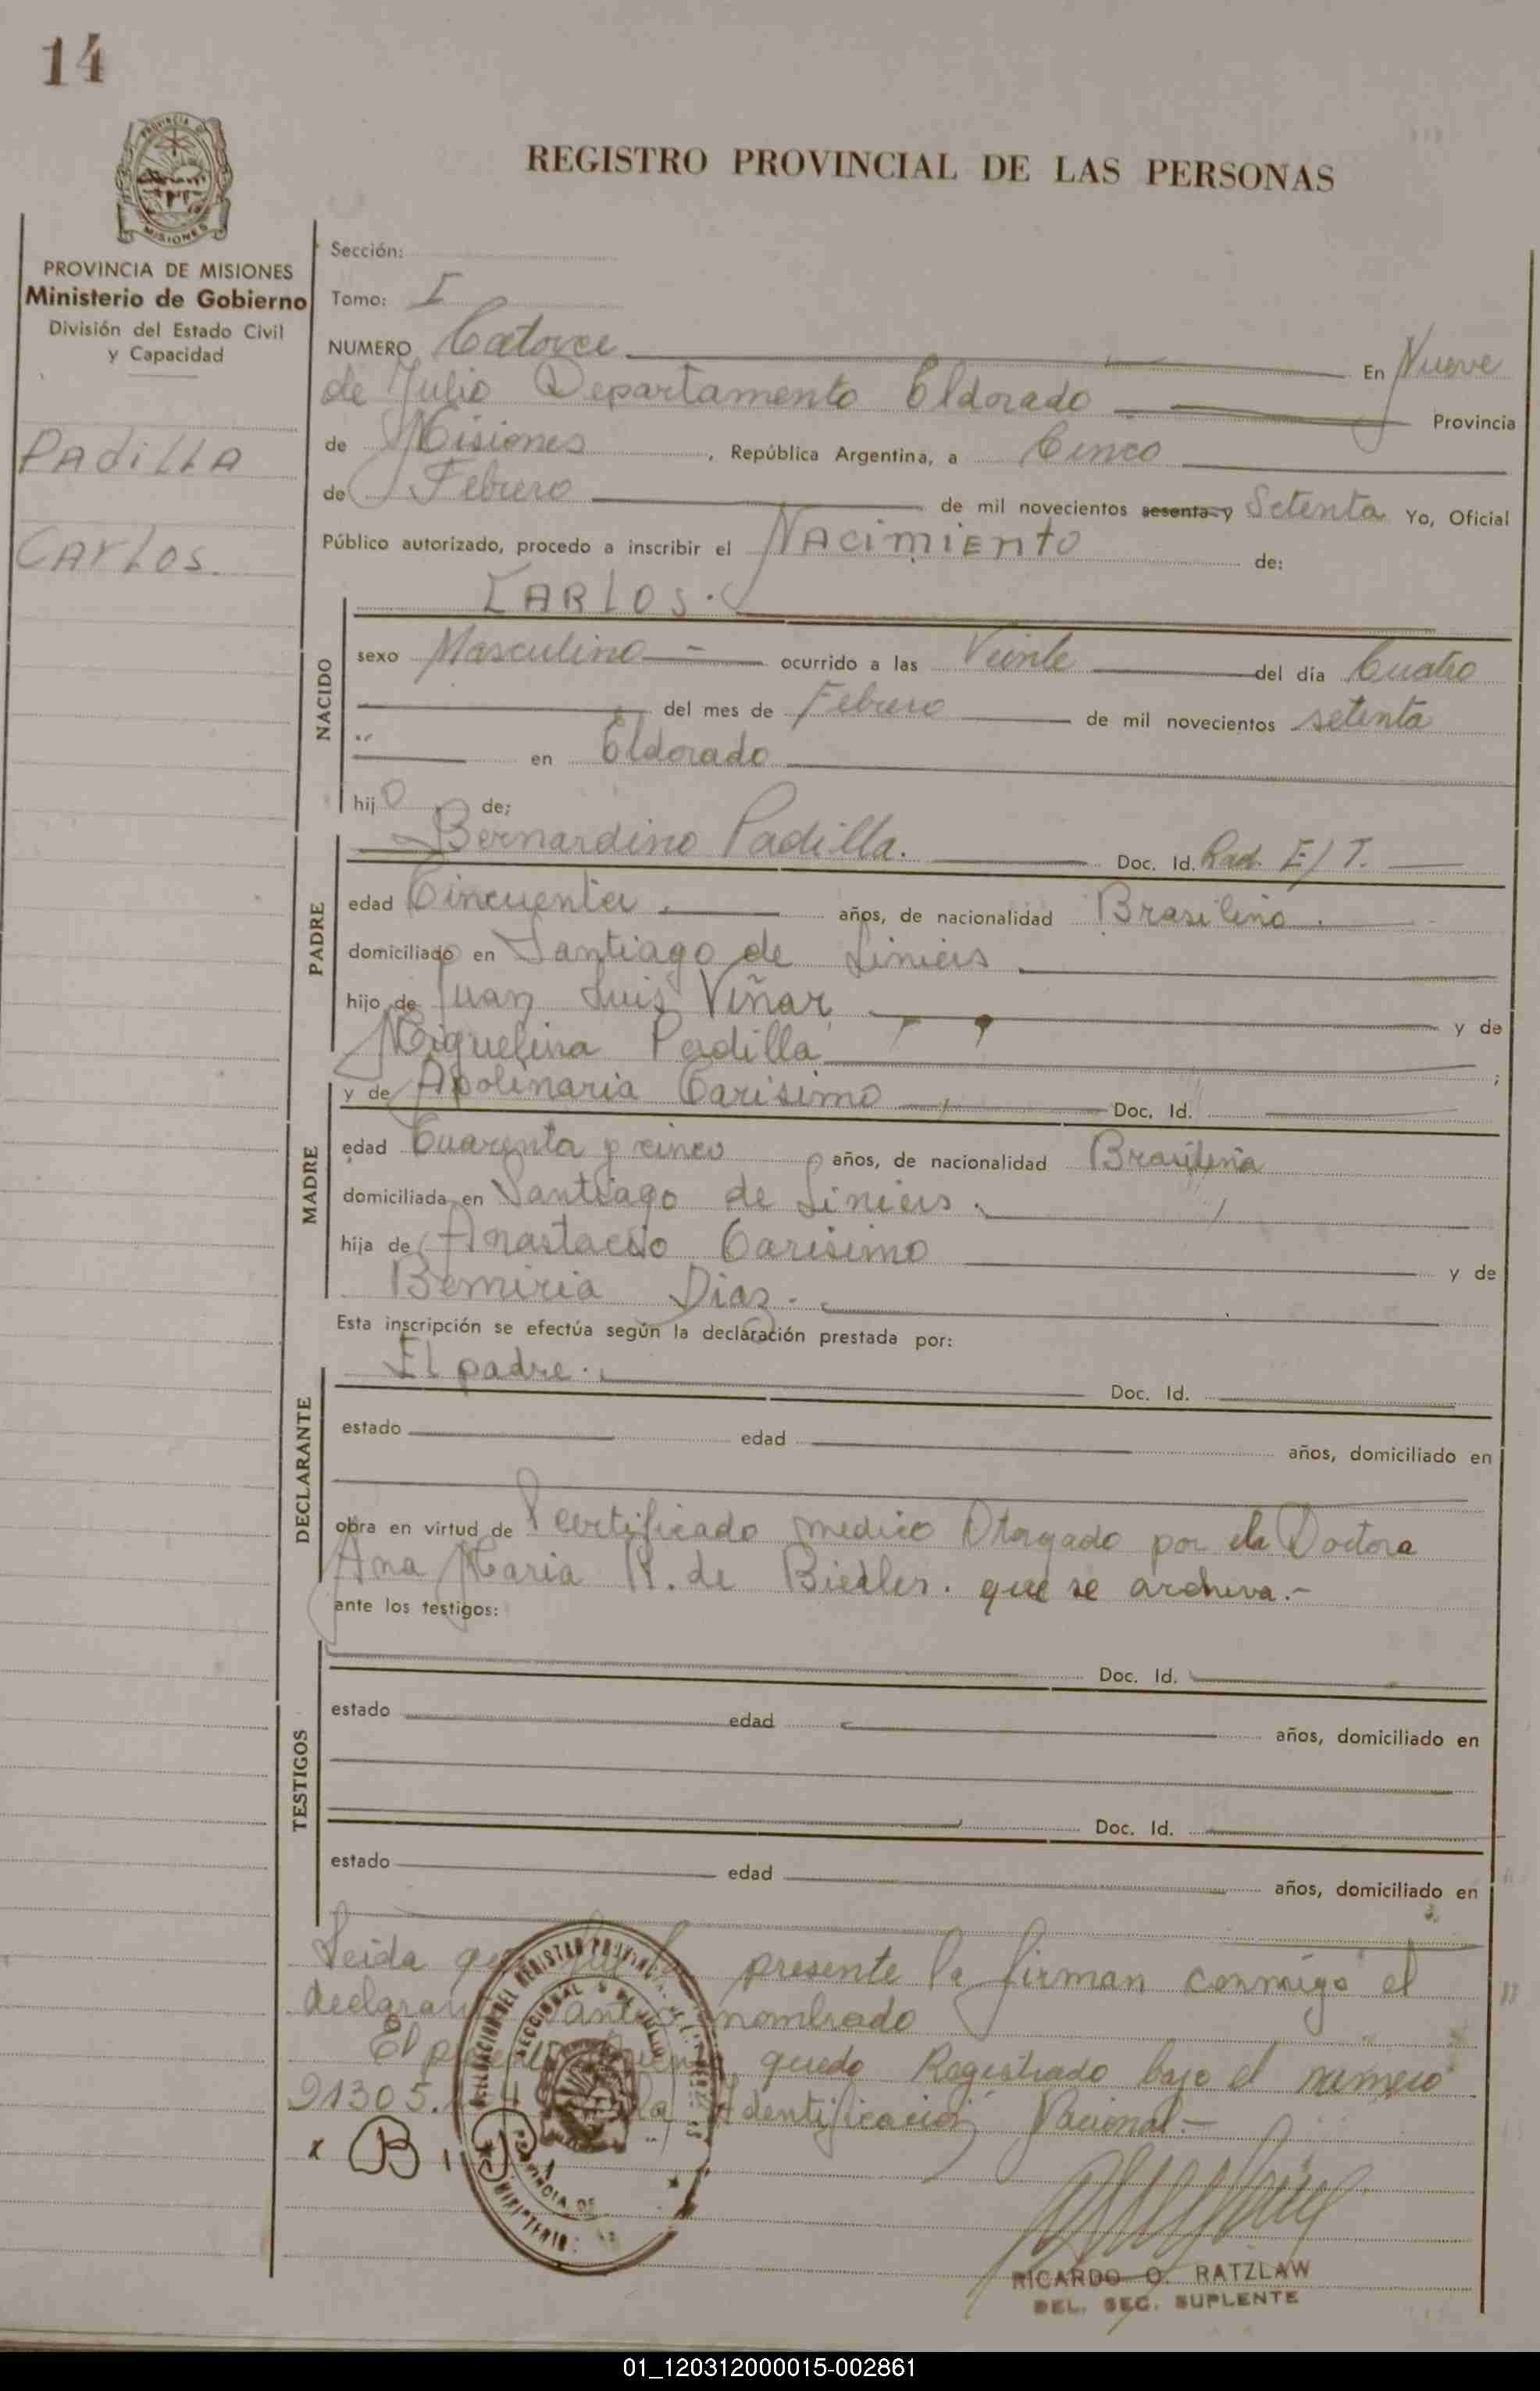 14
REGISTRO PROVINCIAL DE LAS PERSONAS
PROVINCIA DE
MISIONES
PROVINCIA DE MISIONES
Ministerio de Gobierno
División del Estado Civil
y Capacidad
PADILLA
CARLOS.
Sección:
Tomo: I
NUMERO Catorce En Nueve
de Julio Departamento Eldorado Provincia
de Misiones, República Argentina, a Cinco
de Febrero de mil novecientos sesenta y Setenta Yo, Oficial
Público autorizado, procedo a inscribir el NACIMIENTO de:
CARLOS.
NACIDO
sexo Masculino ocurrido a las Veinte del día Cuatro
del mes de Febrero de mil novecientos setenta
en Eldorado
hijo de;
PADRE
Bernardino Padilla. Doc. Id. Rad. E/T.
edad Cincuenta. años, de nacionalidad Brasileño.
domiciliado en Santiago de Liniers
hijo de Juan Luis Viñar y de
Miguelina Padilla ;
MADRE
y de Apolinaria Carisimo Doc. Id.
edad Cuarenta y cinco años, de nacionalidad Brasileña
domiciliada en Santiago de Liniers.
hija de Anastacio Carisimo y de
Bemiria Diaz.
Esta inscripción se efectúa según la declaración prestada por:
DECLARANTE
El padre. Doc. Id.
estado edad años, domiciliado en
obra en virtud de certificado medico Otorgado por la Doctora
Ana Maria R. de Biedler. que se archiva.-
ante los testigos:
TESTIGOS
Doc. Id.
estado edad años, domiciliado en
Doc. Id.
estado edad años, domiciliado en
Leida presente la firman conmigo el
nombrado
El quedo Registrado bajo el numero
91305. la Identificacion Nacional.-
x B. P.
RICARDO O. RATZLAW
DEL. SEC. SUPLENTE
01_120312000015-002861